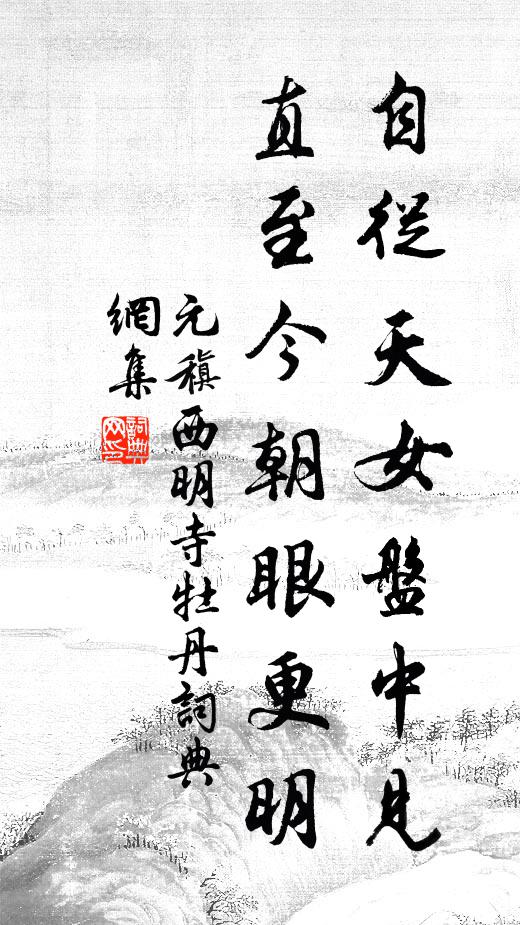 自從天女盤中見
直至今朝眼更明
元稹西明寺牡丹詞典
網集
詞典
网印